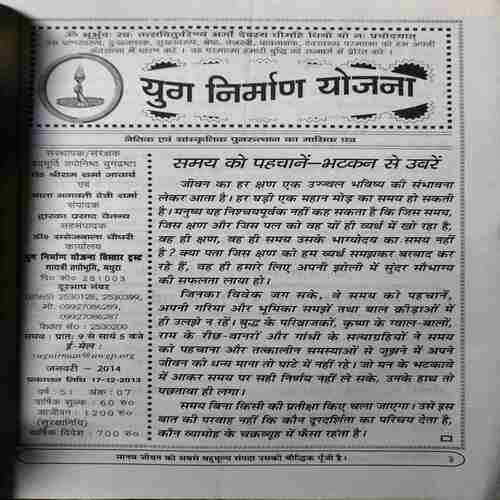 ॐ भूर्भुवः स्वः तत्सवितुर्वरेण्यं भर्गो देवस्य धीमहि धियो यो नः प्रचोदयात्
उस प्राणस्वरूप, दुःखनाशक, सुखस्वरूप, श्रेष्ठ, तेजस्वी, पापनाशक, देवस्वरूप परमात्मा को हम अपनी
अंतरात्मा में धारण करें । वह परमात्मा हमारी बुद्धि को सन्मार्ग में प्रेरित करे ।
युग निर्माण योजना
नैतिक एवं सांस्कृतिक पुनरुत्थान का मासिक पत्र
संस्थापक/संरक्षक
वेदमूर्ति तपोनिष्ठ युगद्रष्टा
पं० श्रीराम शर्मा आचार्य
एवं
माता भगवती देवी शर्मा
संपादक
द्वारका प्रसाद चैतन्य
सहसंपादक
डॉ० सरोजबाला चौधरी
कार्यालय
युग निर्माण योजना विस्तार ट्रस्ट
गायत्री तपोभूमि, मथुरा
पि० को० 281003
दूरभाष नंबर
(0565) 2530128, 2530399,
मो. 09927086289,
09927086287
फैक्स नं० : 2530200
समय : प्रातः 9 से सायं 5 तक
ई-मेल :
yugnirman@awgp.org
जनवरी - 2014
प्रकाशन तिथि 17-12-2013
वर्ष : 51 अंक : 07
वार्षिक शुल्क : 60 रु०
आजीवन : 1200 रु०
(सुरक्षानिधि)
वार्षिक विदेश : 700 रु०
समय को पहचानें–भटकन से उबरें
जीवन का हर क्षण एक उज्ज्वल भविष्य की संभावना
लेकर आता है । हर घड़ी एक महान मोड़ का समय हो सकती
है । मनुष्य यह निश्चयपूर्वक नहीं कह सकता है कि जिस समय,
जिस क्षण और जिस पल को वह यों ही व्यर्थ में खो रहा है,
वह ही क्षण, वह ही समय उसके भाग्योदय का समय नहीं
है ? क्या पता जिस क्षण को हम व्यर्थ समझकर बरबाद कर
रहे हैं, वह ही हमारे लिए अपनी झोली में सुंदर सौभाग्य
की सफलता लाया हो ।
जिनका विवेक जग सके, वे समय को पहचानें,
अपनी गरिमा और भूमिका समझें तथा बाल क्रीड़ाओं में
ही उलझे न रहें । बुद्ध के परिव्राजकों, कृष्ण के ग्वाल-बालों,
राम के रीछ-वानरों और गांधी के सत्याग्रहियों ने समय
को पहचाना और तत्कालीन समस्याओं से जूझने में अपने
जीवन को धन्य माना तो घाटे में नहीं रहे । जो मन के भटकावे
में आकर समय पर सही निर्णय नहीं ले सके, उनके हाथ तो
पछतावा ही लगा ।
समय बिना किसी की प्रतीक्षा किए चला जाएगा । उसे इस
बात की परवाह नहीं कि कौन दूरदर्शिता का परिचय देता है,
कौन व्यामोह के चक्रव्यूह में फँसा रहता है ।
मानव जीवन की सबसे बहुमूल्य संपदा उसकी बौद्धिक पूँजी है ।
३